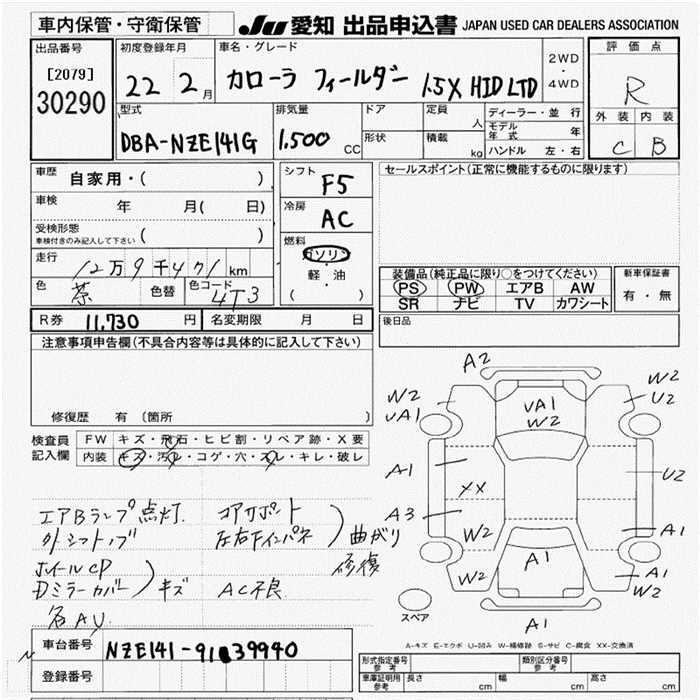 車内保管・守衛保管
JU 愛知 出品申込書 JAPAN USED CAR DEALERS ASSOCIATION
出品番号
[2079]
30290
初度登録年月
22 2月
車名・グレード
カローラ フィールダー 1.5X HID LTD
2WD
・
4WD
評価点
R
外装 内装
C B
型式
DBA-NZE141G
排気量
1.500 cc
ドア
形状
定員
人
積載
kg
ディーラー・並行
モデル年式 年
ハンドル 左・右
車歴 自家用・( )
車検 年 月( 日)
受検形態
車検付きのみ記入して下さい ( )
走行 12万9千471km
色 茶 色替 色コード 4T3
シフト
F5
冷房
AC
燃料
ガソリン
・
軽・油
( )
セールスポイント(正常に機能するものに限ります)
装備品(純正品に限り○をつけてください)
PS PW エアB AW
SR ナビ TV カワシート
新車保証書
有・無
R券 11,730円
名変期限 月 日
後日品
注意事項申告欄(不具合内容等は具体的に記入して下さい)
修復歴 有 (箇所 )
検査員
記入欄
FW キズ・飛石・ヒビ割・リペア跡・X要
内装 キズ・汚レ・コゲ・穴・スレ・キレ・破レ
エアBランプ点灯. コアサポート
外シフトノブ 左右Fインパネ 曲がり
修復
ホイールCP
Dミラーカバー キズ AC不良
名AU
A2
W2
UA1
UA1
W2
W2
U2
A1
XX
U2
A3
W2
A1
W2
A1
A1
W2
A1
スペア
A-キズ E-エクボ U-凹み W-補修跡 S-サビ C-腐食 XX-交換済
車台番号 NZE141-9139940
登録番号
形式指定番号
参考
類別区分番号
参考
車庫証明用
参考
長さ cm 幅 cm 高さ cm